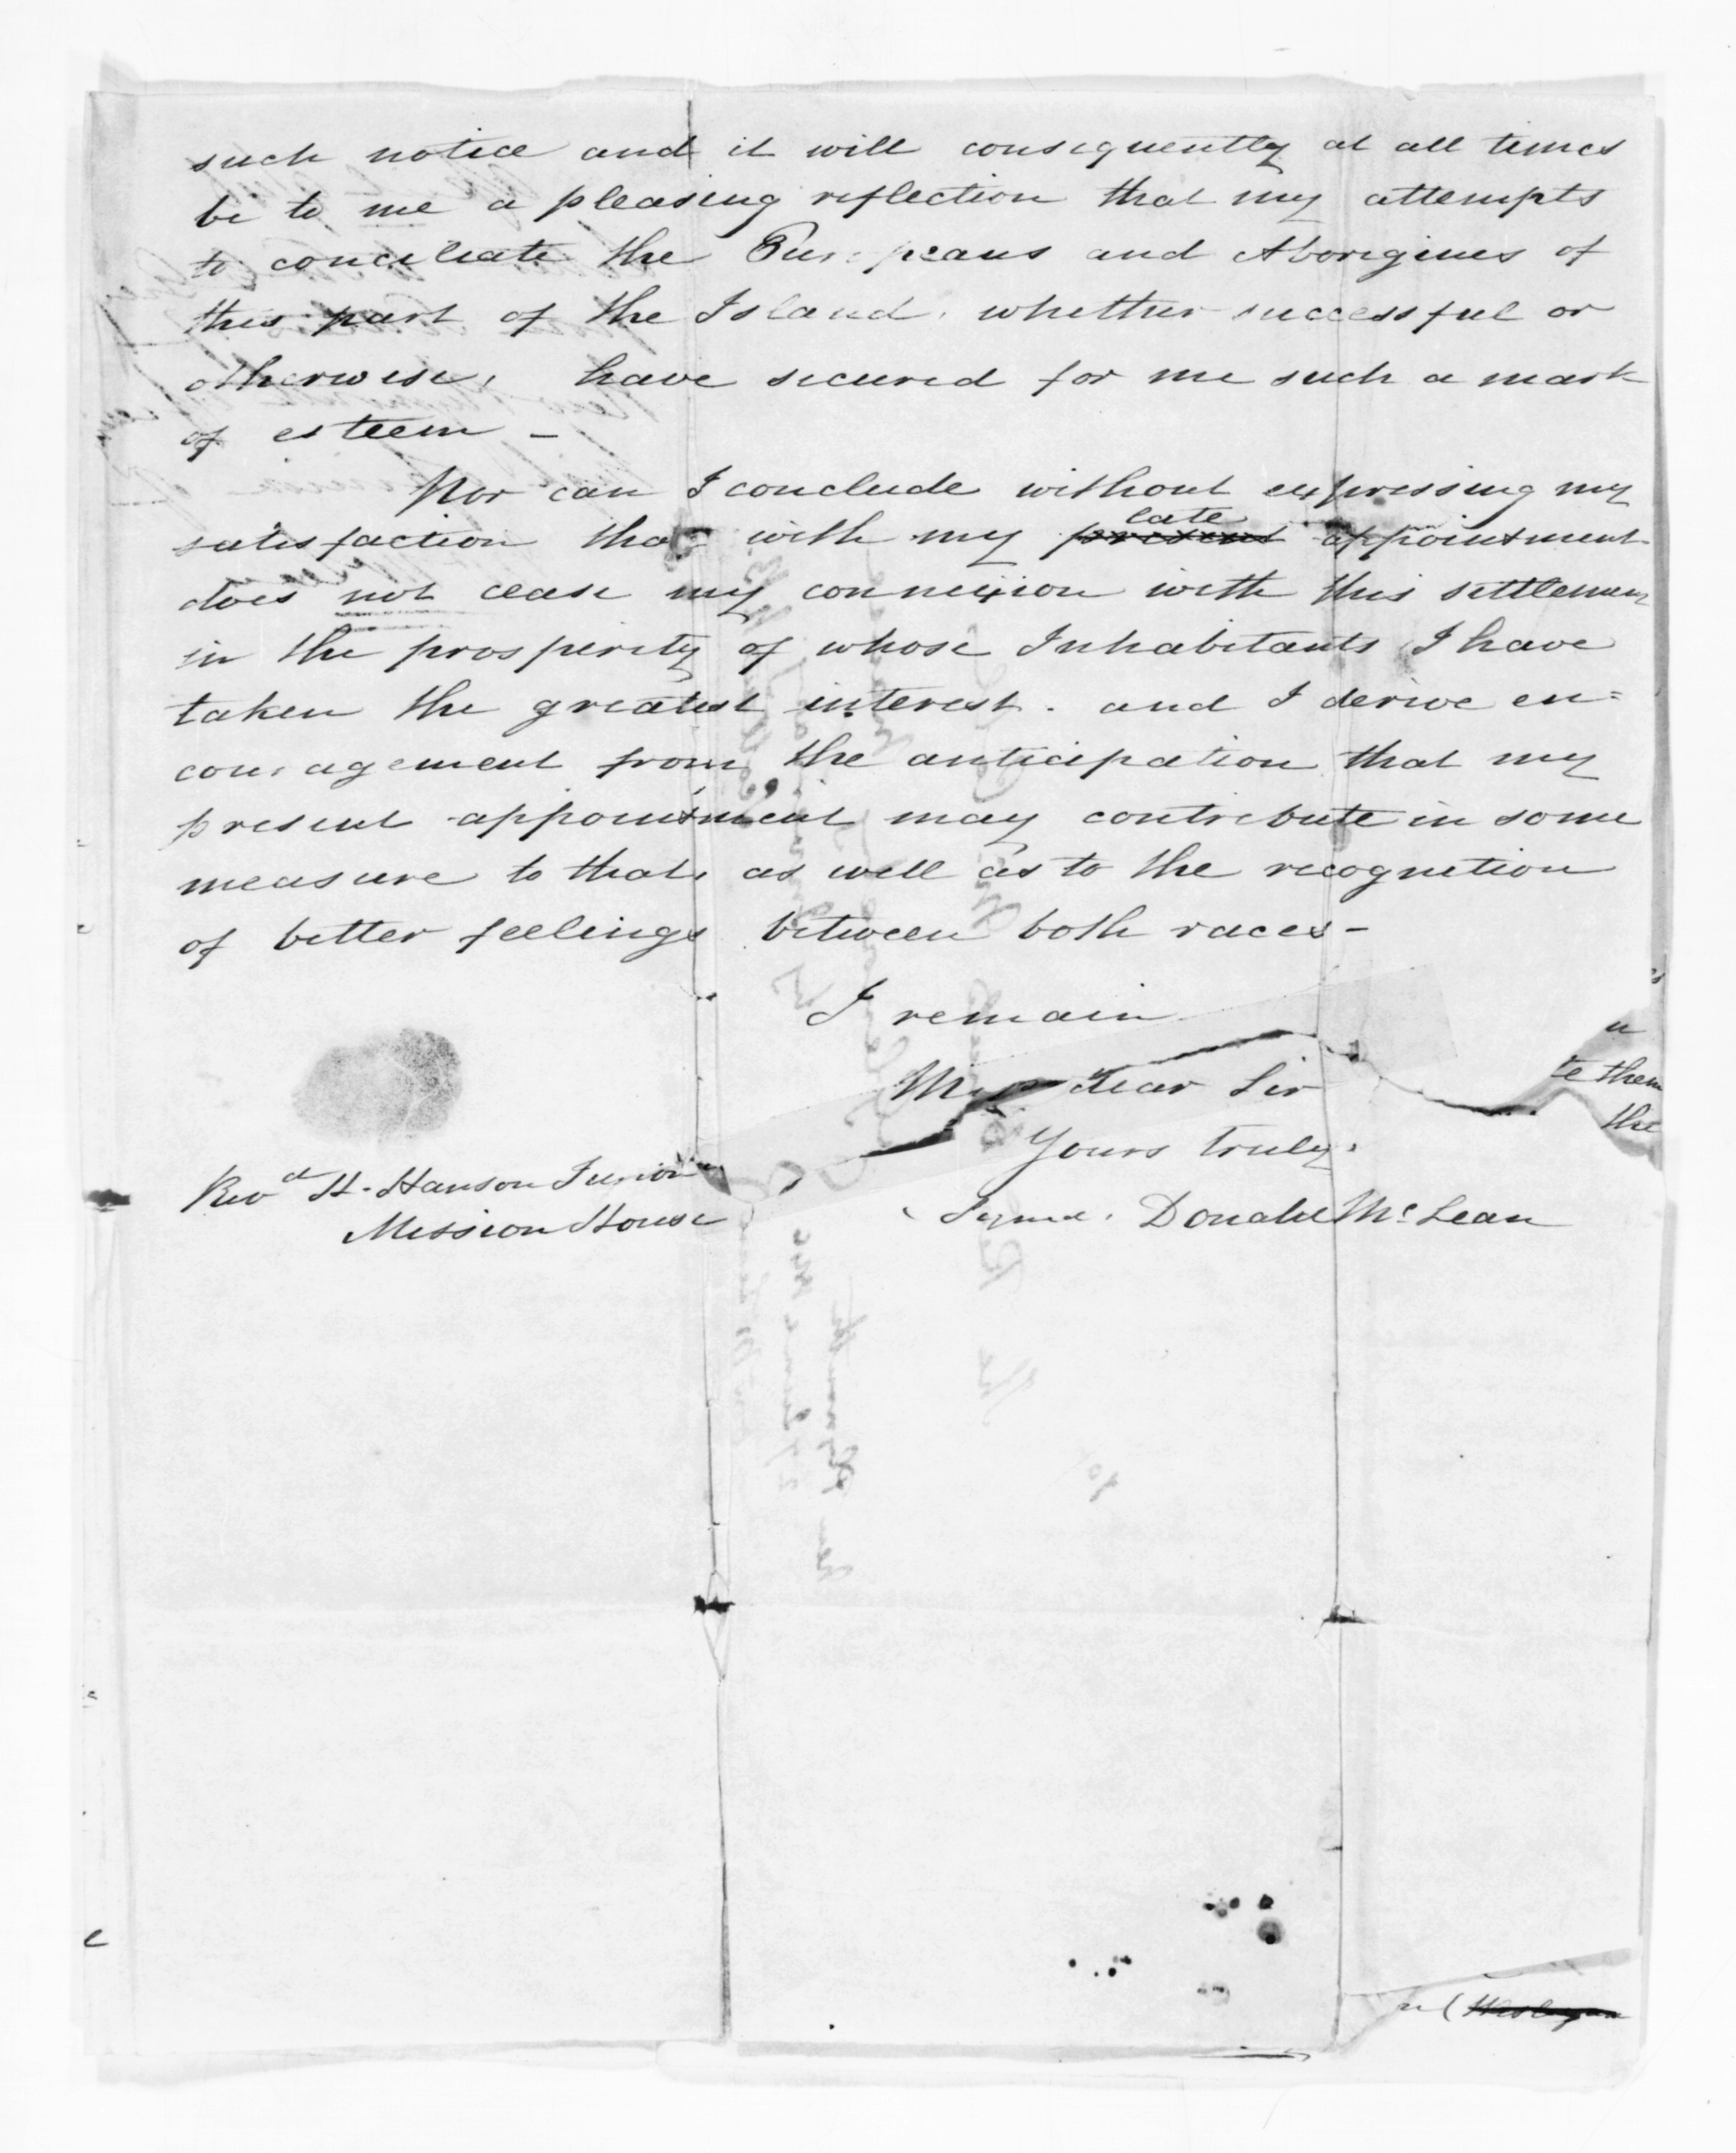 such notice and it will consequently at all times
be to me a pleasing reflection that my attempts
to conciliate the Europeans and Aborigines of
this part of the Island, whether successful or
otherwise, have secured for me such a mark
of esteem -
Nor can I conclude without expressing my
satisfaction that with my present late appointment
does not cease my connexion with this settlement
in the prosperity of whose Inhabitants I have
taken the greatest interest. and I derive en=
couragement from the anticipation that my
present appointment may contribute in some
measure to that, as well as to the recognition
of better feelings between both races -
I remain
My Dear Sir
Yours truly,
Signed. Donald McLean
Revd H. Hanson Turton
Mission House
te them
the